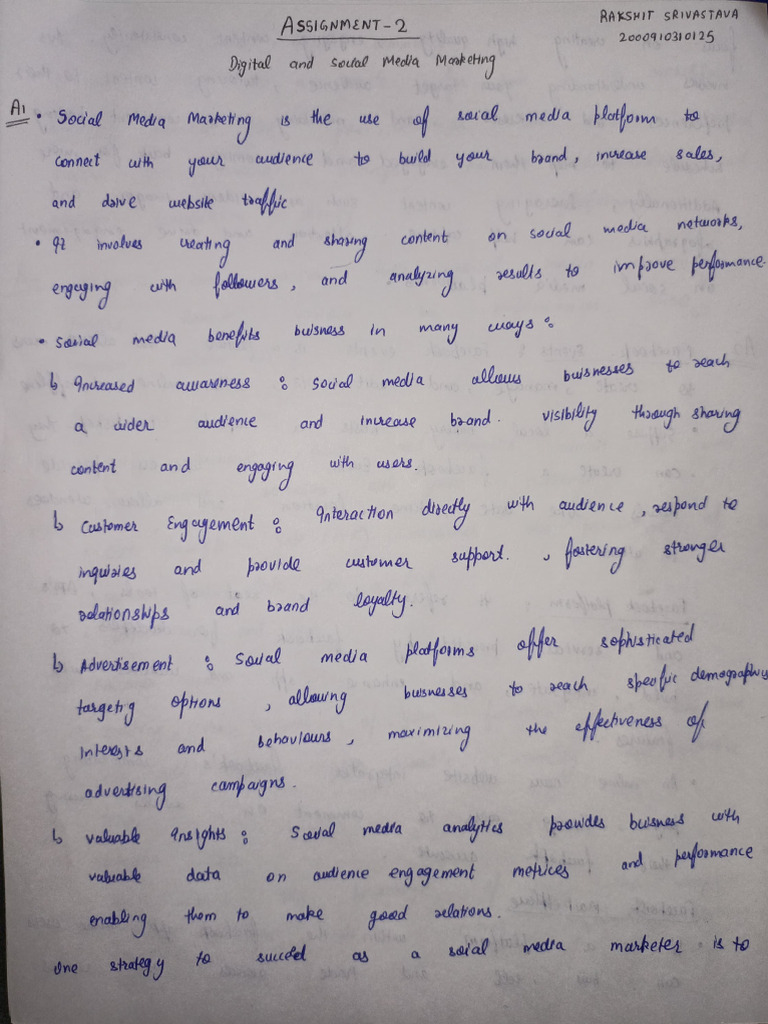 ASSIGNMENT-2
RAKSHIT SRIVASTAVA
2000910310125
Digital and Social Media Marketing
A1
• Social Media Marketing is the use of social media platform to
connect with your audience to build your brand, increase sales,
and drive website traffic
• It involves creating and sharing content on social media networks,
engaging with followers, and analyzing results to improve performance.
• Social media benefits buisness in many ways :
↳ Increased awareness : Social media allows buisnesses to reach
a wider audience and increase brand. visibility through sharing
content and engaging with users.
↳ Customer Engagement : Interaction directly with audience, respond to
inquiries and provide customer support. , fostering stronger
relationships and brand loyalty.
↳ Advertisement : Social media platforms offer sophisticated
targeting options , allowing buisnesses to reach specific demographics
interests and behaviours, maximizing the effectiveness of
advertising campaigns.
↳ Valuable Insights : Social media analytics provides buisness with
valuable data on audience engagement metrices and performance
enabling them to make good relations.
One strategy to succeed as a social media marketer is to